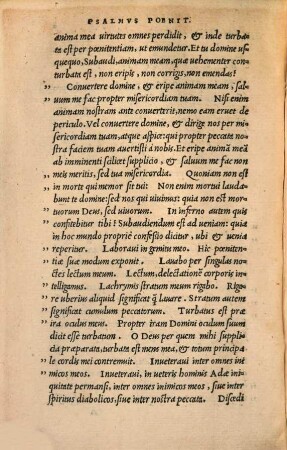 PSALMVS POENIT.
anima mea uirutes omnes perdidit, & inde turba-
ta est per pœnitentiam, ut emundetur. Et tu domine us-
quequo, Subaudi, animam meam, quæ uehementer con-
turbata est, non eripis, non corrigis, non emendas?
Conuertere domine, & eripe animam meam, sal-
uum me fac propter misericordiam tuam. Nisi enim
animam nostram ante conuerteris, nemo eam eruet de
periculo. Vel conuertere domine, & dirige nos per mi-
sericordiam tuam, atque aspice: qui propter peccata no-
stra faciem tuam auertisti à nobis. Et eripe animã meã
ab imminenti scilicet supplicio, & saluum me fac non
meis meritis, sed tua misericordia. Quoniam non est
in morte qui memor sit tui: Non enim mortui lauda-
bunt te domine: sed nos qui uiuimus: quia non est mor-
tuorum Deus, sed uiuorum. In inferno autem quis
confitebitur tibi? Subaudiendum est ad ueniam: quia
in hoc mundo propriè confessio dicitur, ubi & uenia
reperitur. Laboraui in gemitu meo: Hic pœniten-
tiæ suæ modum exponit. Lauabo per singulas no-
ctes lectum meum. Lectum, delectationẽ corporis in-
telligamus. Lachrymis stratum meum rigabo. Riga-
re uberius aliquid significat q̃ lauare. Stratum autem
significat cumulum peccatorum. Turbatus est præ
ira oculus meus. Propter iram Domini oculum suum
dicit esse turbatum. O Deus per quem mihi suppli-
cia præparata, turbata est mens mea, & totum principa-
le cordis mei contremuit. Inueteraui inter omnes ini-
micos meos. Inueteraui, in ueteris hominis Adæ ini-
quitate permansi, inter omnes inimicos meos, siue inter
spiritus diabolicos, siue inter nostra peccata. Discedi